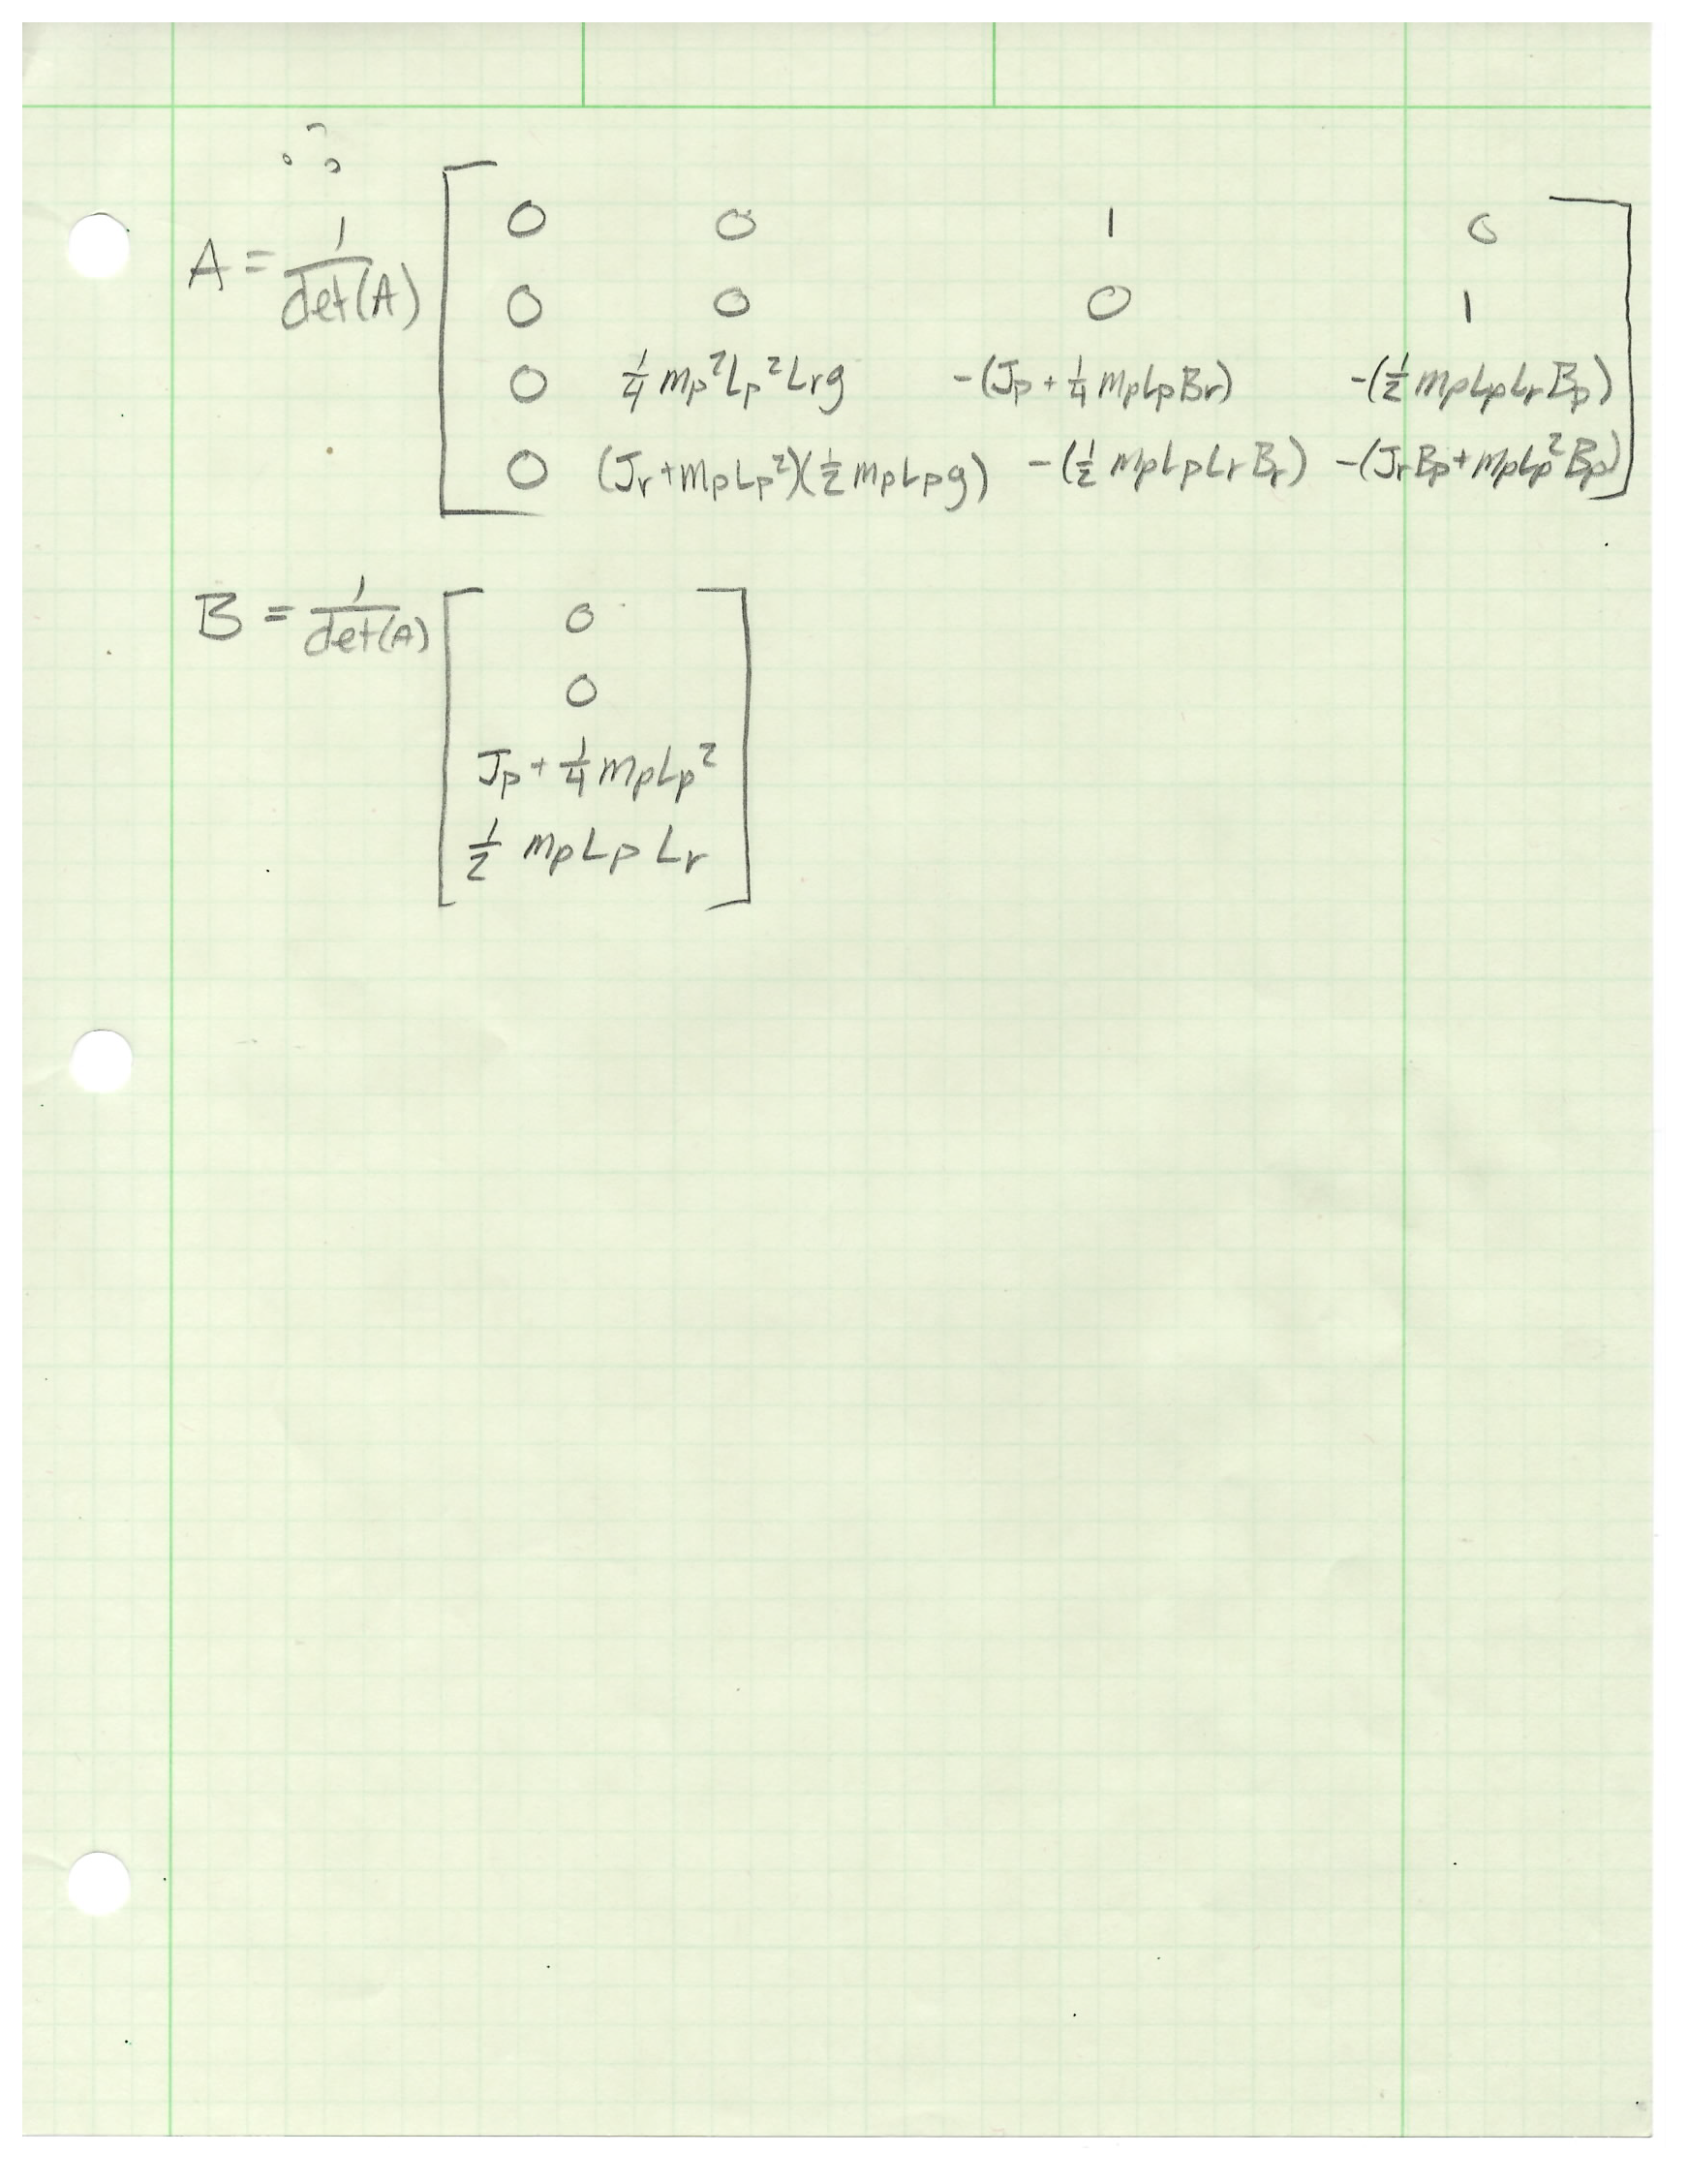 ∴
A = 1/det(A) [ 0 0 1 0
0 0 0 1
0 1/4 mp²Lp²Lrg -(Jp + 1/4 mpLpBr) -(1/2 mpLpLrBp)
0 (Jr + mpLp²)(1/2 mpLpg) -(1/2 mpLpLrBr) -(JrBp + mpLp²Bp) ]
B = 1/det(A) [ 0
0
Jp + 1/4 mpLp²
1/2 mpLpLr ]